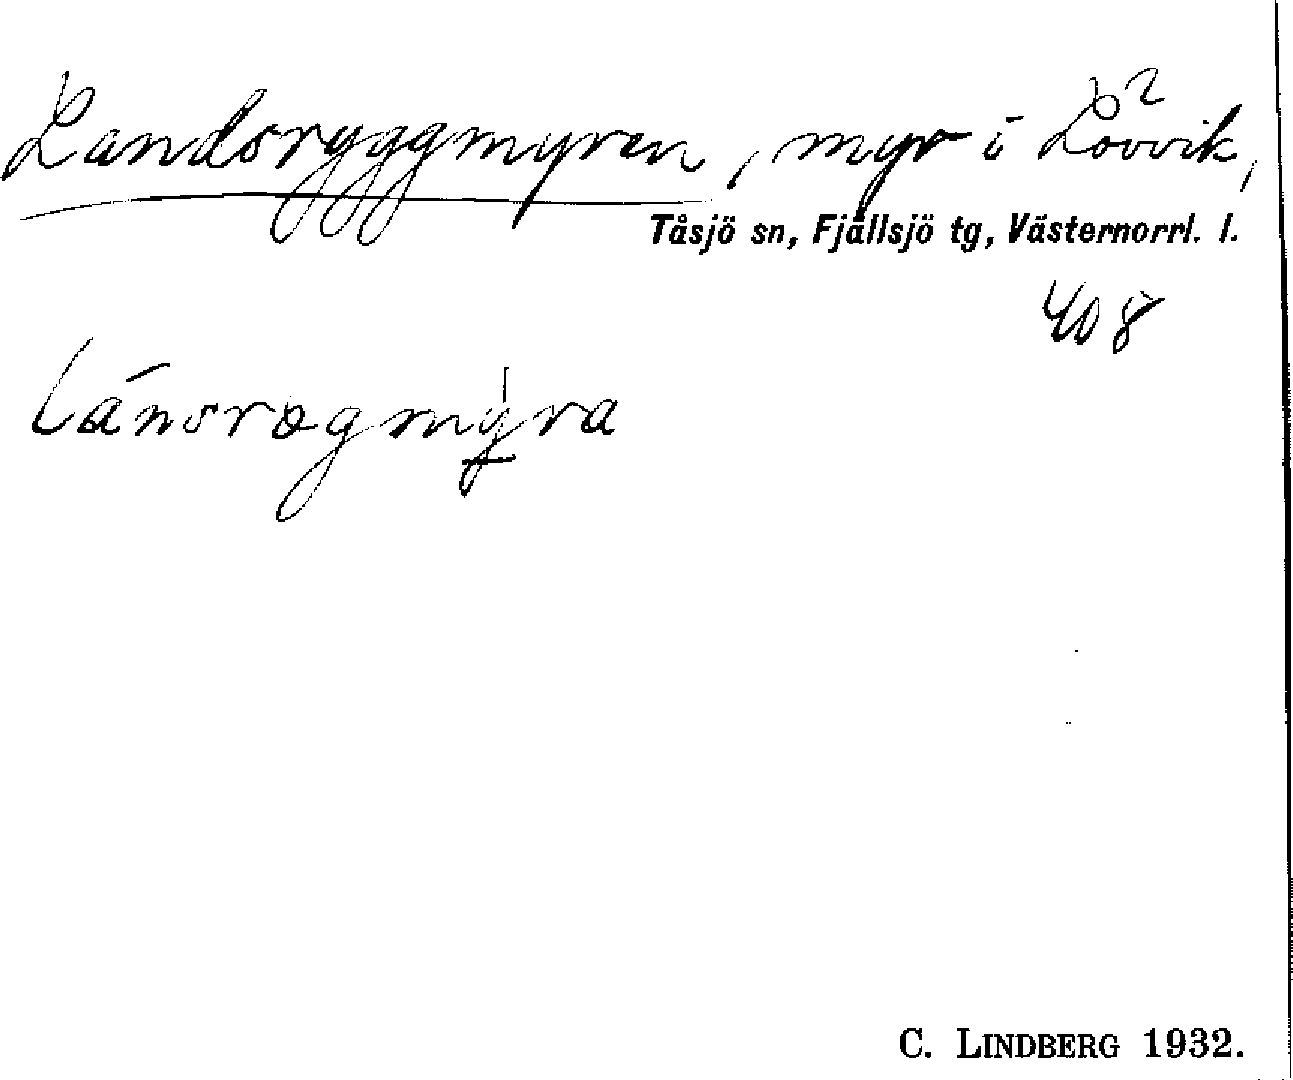 Landsryggmyren, myr i Lövvik²,
Tåsjö sn, Fjällsjö tg, Västernorrl. l.
408
Lánsrægmýra
C. LINDBERG 1932.